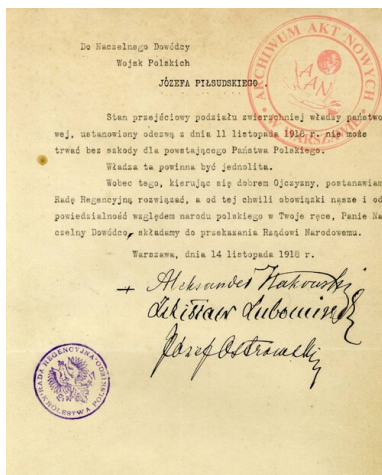 Do Naczelnego Dowódcy
Wojsk Polskich
JÓZEFA PIŁSUDSKIEGO.
Stan przejściowy podziału zwierzchniej władzy państwo
wej, ustanowiony odezwą z dnia 11 listopada 1918 r. nie może
trwać bez szkody dla powstającego Państwa Polskiego.
Władza ta powinna być jednolita.
Wobec tego, kierując się dobrem Ojczyzny, postanawiam
Radę Regencyjną rozwiązać, a od tej chwili obowiązki nasze i od
powiedzialność względem narodu polskiego w Twoje ręce, Panie Na
czelny Dowódco, składamy do przekazania Rządowi Narodowemu.
Warszawa, dnia 14 listopada 1918 r.
+ Aleksander Kakowski
Zdzisław Lubomirski
Józef Ostrowski
ARCHIWUM AKT NOWYCH
W WARSZAWIE
AAN
RADA REGENCYJNA
KRÓLESTWA POLSKIEGO